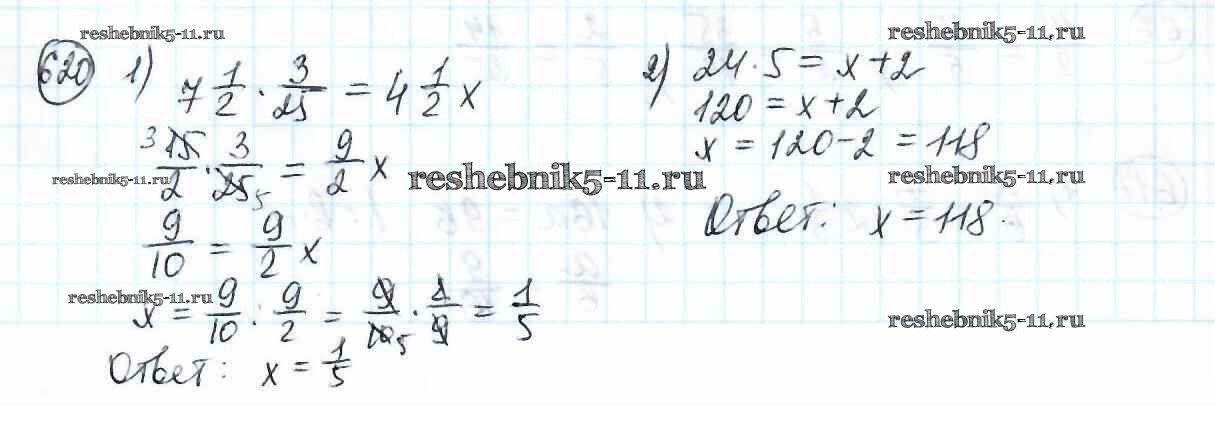 reshebnik5-11.ru
reshebnik5-11.ru
620 1) 7 1/2 · 3/25 = 4 1/2 x
3 15/2 · 3/25 5 = 9/2 x
reshebnik5-11.ru
reshebnik5-11.ru
9/10 = 9/2 x
reshebnik5-11.ru
x = 9/10 : 9/2 = 9/10 5 · 1/9 = 1/5
Ответ: x = 1/5
2) 24 · 5 = x + 2
120 = x + 2
x = 120 - 2 = 118
reshebnik5-11.ru
Ответ: x = 118.
reshebnik5-11.ru